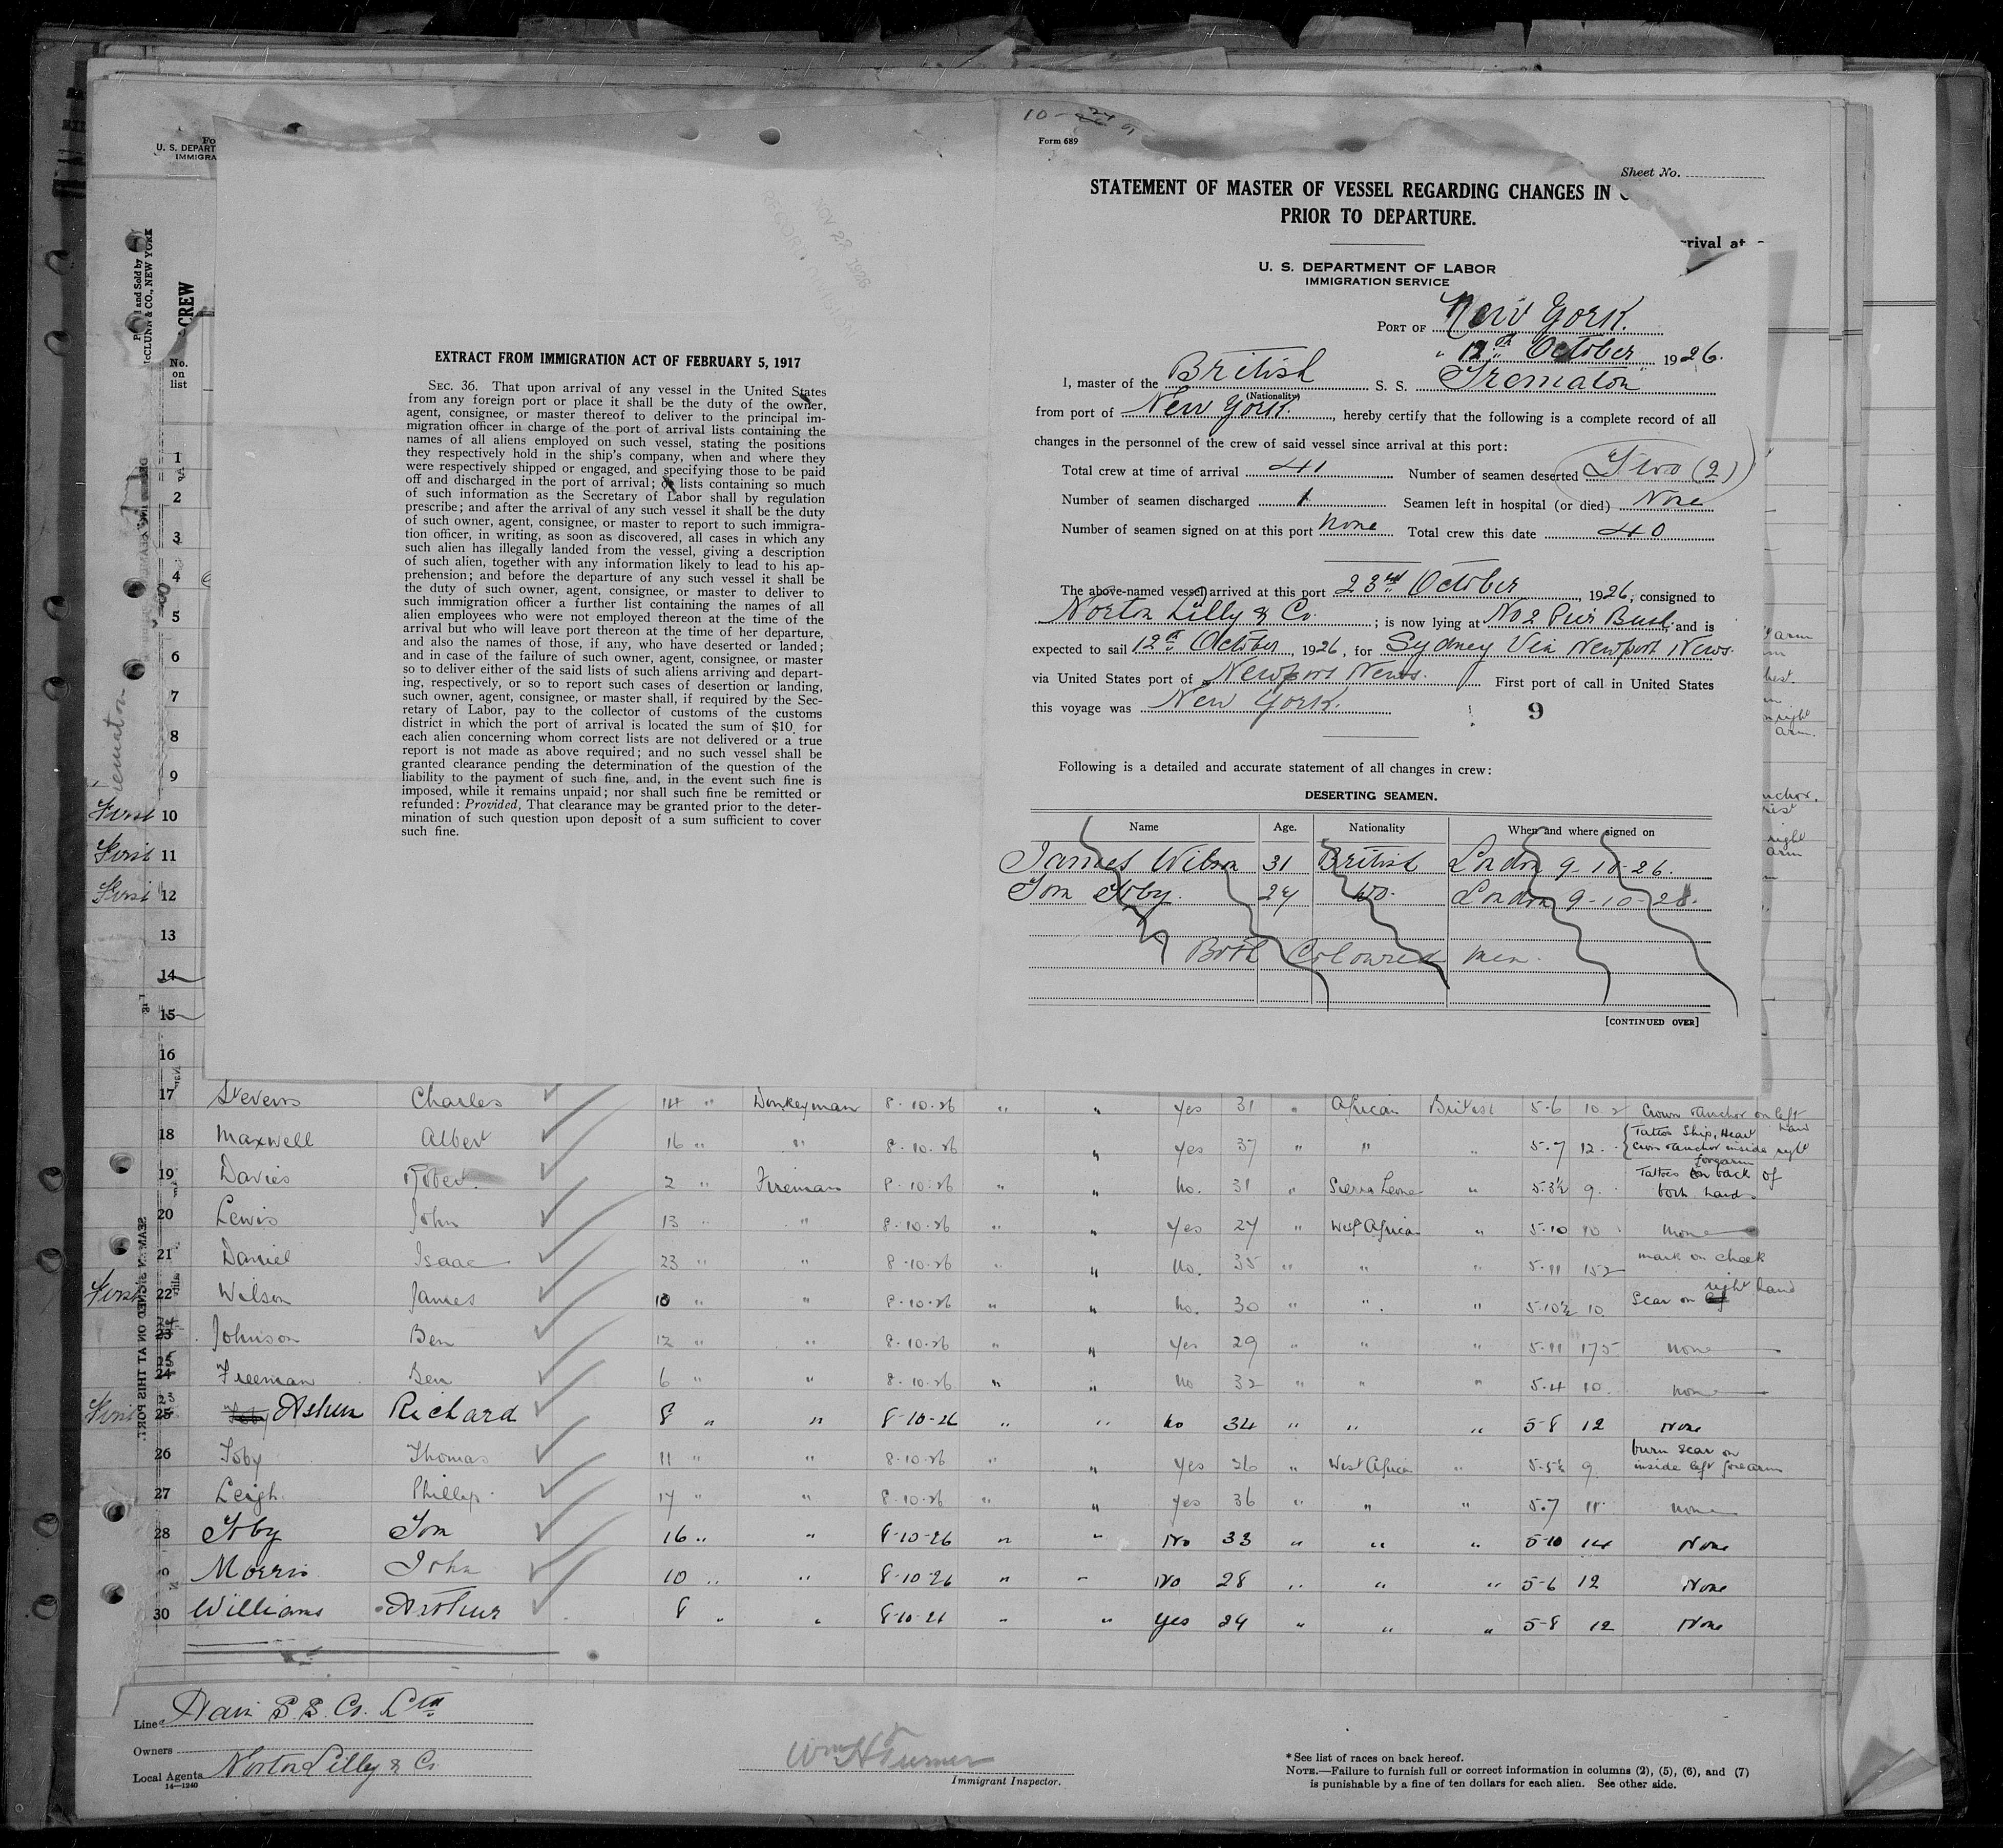 10-24
Form 689
Sheet No.
STATEMENT OF MASTER OF VESSEL REGARDING CHANGES IN C
PRIOR TO DEPARTURE.
rrival at
U. S. DEPARTMENT OF LABOR
IMMIGRATION SERVICE
PORT OF New York.
12th October 1926.
I, master of the British S. S. Trematon
(Nationality)
from port of New York, hereby certify that the following is a complete record of all
changes in the personnel of the crew of said vessel since arrival at this port:
Total crew at time of arrival 41 Number of seamen deserted Two (2)
Number of seamen discharged 1 Seamen left in hospital (or died) None
Number of seamen signed on at this port None Total crew this date 40
The above-named vessel arrived at this port 23rd October, 1926, consigned to
Norton Lilly & Co.; is now lying at No 2 Pier Bush and is
expected to sail 12th October, 1926, for Sydney Via Newport News.
via United States port of Newport News. First port of call in United States
this voyage was New York.
9
Following is a detailed and accurate statement of all changes in crew:
DESERTING SEAMEN.
Name Age. Nationality When and where signed on
James Wilson 31 British London 9-10-26.
Tom Toby. 24 Do. London 9-10-26.
Both Coloured Men.
[CONTINUED OVER]
Fo
U. S. DEPART
IMMIGRA
and Sold by
McCLUNN & CO., NEW YORK
CREW
No.
on
list
NOV 27 1926
EXTRACT FROM IMMIGRATION ACT OF FEBRUARY 5, 1917
SEC. 36. That upon arrival of any vessel in the United States
from any foreign port or place it shall be the duty of the owner,
agent, consignee, or master thereof to deliver to the principal im-
migration officer in charge of the port of arrival lists containing the
names of all aliens employed on such vessel, stating the positions
they respectively hold in the ship's company, when and where they
were respectively shipped or engaged, and specifying those to be paid
off and discharged in the port of arrival; or lists containing so much
of such information as the Secretary of Labor shall by regulation
prescribe; and after the arrival of any such vessel it shall be the duty
of such owner, agent, consignee, or master to report to such immigra-
tion officer, in writing, as soon as discovered, all cases in which any
such alien has illegally landed from the vessel, giving a description
of such alien, together with any information likely to lead to his ap-
prehension; and before the departure of any such vessel it shall be
the duty of such owner, agent, consignee, or master to deliver to
such immigration officer a further list containing the names of all
alien employees who were not employed thereon at the time of the
arrival but who will leave port thereon at the time of her departure,
and also the names of those, if any, who have deserted or landed;
and in case of the failure of such owner, agent, consignee, or master
so to deliver either of the said lists of such aliens arriving and depart-
ing, respectively, or so to report such cases of desertion or landing,
such owner, agent, consignee, or master shall, if required by the Sec-
retary of Labor, pay to the collector of customs of the customs
district in which the port of arrival is located the sum of $10 for
each alien concerning whom correct lists are not delivered or a true
report is not made as above required; and no such vessel shall be
granted clearance pending the determination of the question of the
liability to the payment of such fine, and, in the event such fine is
imposed, while it remains unpaid; nor shall such fine be remitted or
refunded: Provided, That clearance may be granted prior to the deter-
mination of such question upon deposit of a sum sufficient to cover
such fine.
1
2
3
4
5
6
7
8
9
First 10
First 11
First 12
13
14
15
16
17 Stevens Charles 14 " Donkeyman 8-10-26 " " Yes 31 " African British 5-6 10.2 Crown & anchor on left hand
18 Maxwell Albert 16 " " 8-10-26 " Yes 37 " " " 5-7 12 Tattoo Ship, Heart Crown & anchor inside right forearm
19 Davies 2 " Fireman 8-10-26 " " No. 31 " Sierra Leone " 5-3½ 9 Tattoos on back of both hands
20 Lewis John 13 " " 8-10-26 " " Yes 27 " West African " 5-10 10 None
21 Daniel Isaac 23 " " 8-10-26 " " No. 35 " " " 5-11 152 mark on cheek
First 22 Wilson James 10 " " 8-10-26 " " No. 30 " " " 5-10½ 10 Scar on right hand
23 Johnson Ben 12 " " 8-10-26 " " Yes 29 " " " 5-11 175 None
24 Freeman Ben 6 " " 8-10-26 " " No 32 " " " 5-4 10 none
First 25 Richard 8 " " 8-10-26 " " No 34 " " " 5-8 12 None
26 Toby Thomas 11 " " 8-10-26 " " Yes 26 " West African " 5-5½ 9 burn scar on inside left forearm
27 Leigh Phillip 17 " " 8-10-26 " " Yes 36 " " " 5-7 11 none
28 Toby Tom 16 " " 8-10-26 " " No 33 " " " 5-10 14 None
Morris John 10 " " 8-10-26 " " No 28 " " " 5-6 12 None
30 Williams Arthur 8 " " 8-10-26 " " Yes 29 " " " 5-8 12 None
Line Hain S.S. Co. Ltd
Owners
Local Agents Norton Lilly & Co.
14—1240
Wm H Turner
Immigrant Inspector.
* See list of races on back hereof.
NOTE.—Failure to furnish full or correct information in columns (2), (5), (6), and (7)
is punishable by a fine of ten dollars for each alien. See other side.